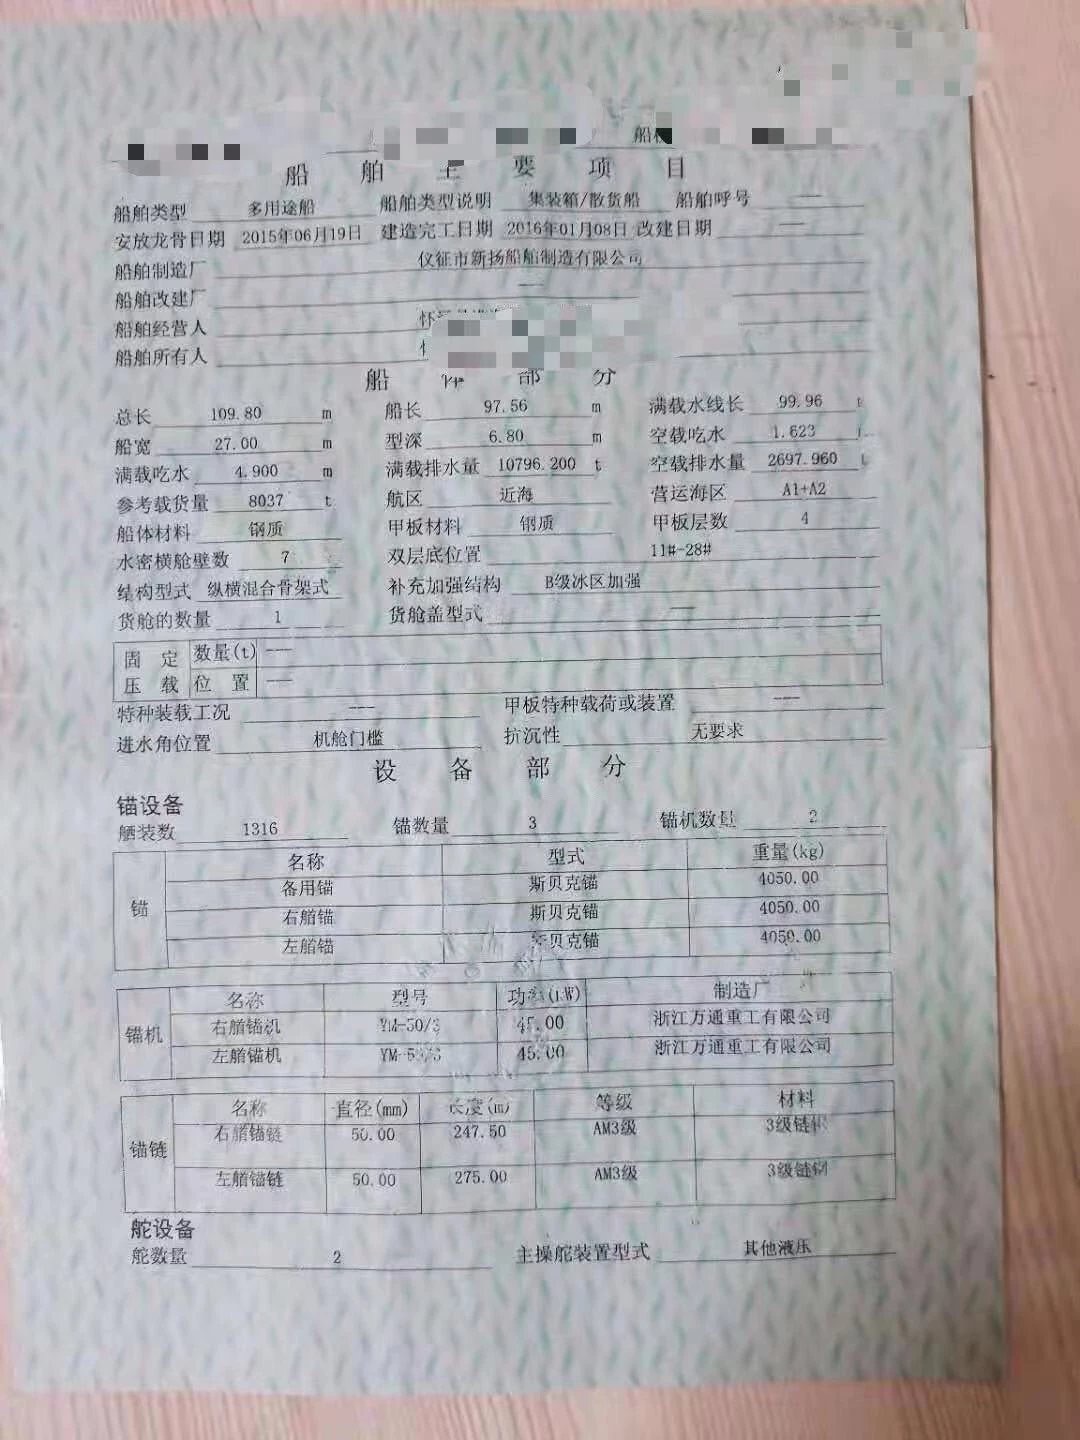 船舶主要项目
船舶类型 多用途船 船舶类型说明 集装箱/散货船 船舶呼号 ——
安放龙骨日期 2015年06月19日 建造完工日期 2016年01月08日 改建日期 ——
船舶制造厂 仪征市新扬船舶制造有限公司
船舶改建厂 ——
船舶经营人
船舶所有人
船体部分
总长 109.80 m 船长 97.56 m 满载水线长 99.96
船宽 27.00 m 型深 6.80 m 空载吃水 1.623
满载吃水 4.900 m 满载排水量 10796.200 t 空载排水量 2697.960 t
参考载货量 8037 t 航区 近海 营运海区 A1+A2
船体材料 钢质 甲板材料 钢质 甲板层数 4
水密横舱壁数 7 双层底位置 11#-28#
结构型式 纵横混合骨架式 补充加强结构 B级冰区加强
货舱的数量 1 货舱盖型式 ——
固定 数量(t) ---
压载 位置 ---
特种装载工况 --- 甲板特种载荷或装置 ---
进水角位置 机舱门槛 抗沉性 无要求
设备部分
锚设备
舾装数 1316 锚数量 3 锚机数量 2
锚 名称 型式 重量(kg)
备用锚 斯贝克锚 4050.00
右艏锚 斯贝克锚 4050.00
左艏锚 贝克锚 4050.00
锚机 名称 型号 功率(kW) 制造厂
右艏锚机 YM-50/3 45.00 浙江万通重工有限公司
左艏锚机 YM-50/3 45.00 浙江万通重工有限公司
锚链 名称 直径(mm) 长度(m) 等级 材料
右艏锚链 50.00 247.50 AM3级 3级链钢
左艏锚链 50.00 275.00 AM3级 3级链钢
舵设备
舵数量 2 主操舵装置型式 其他液压